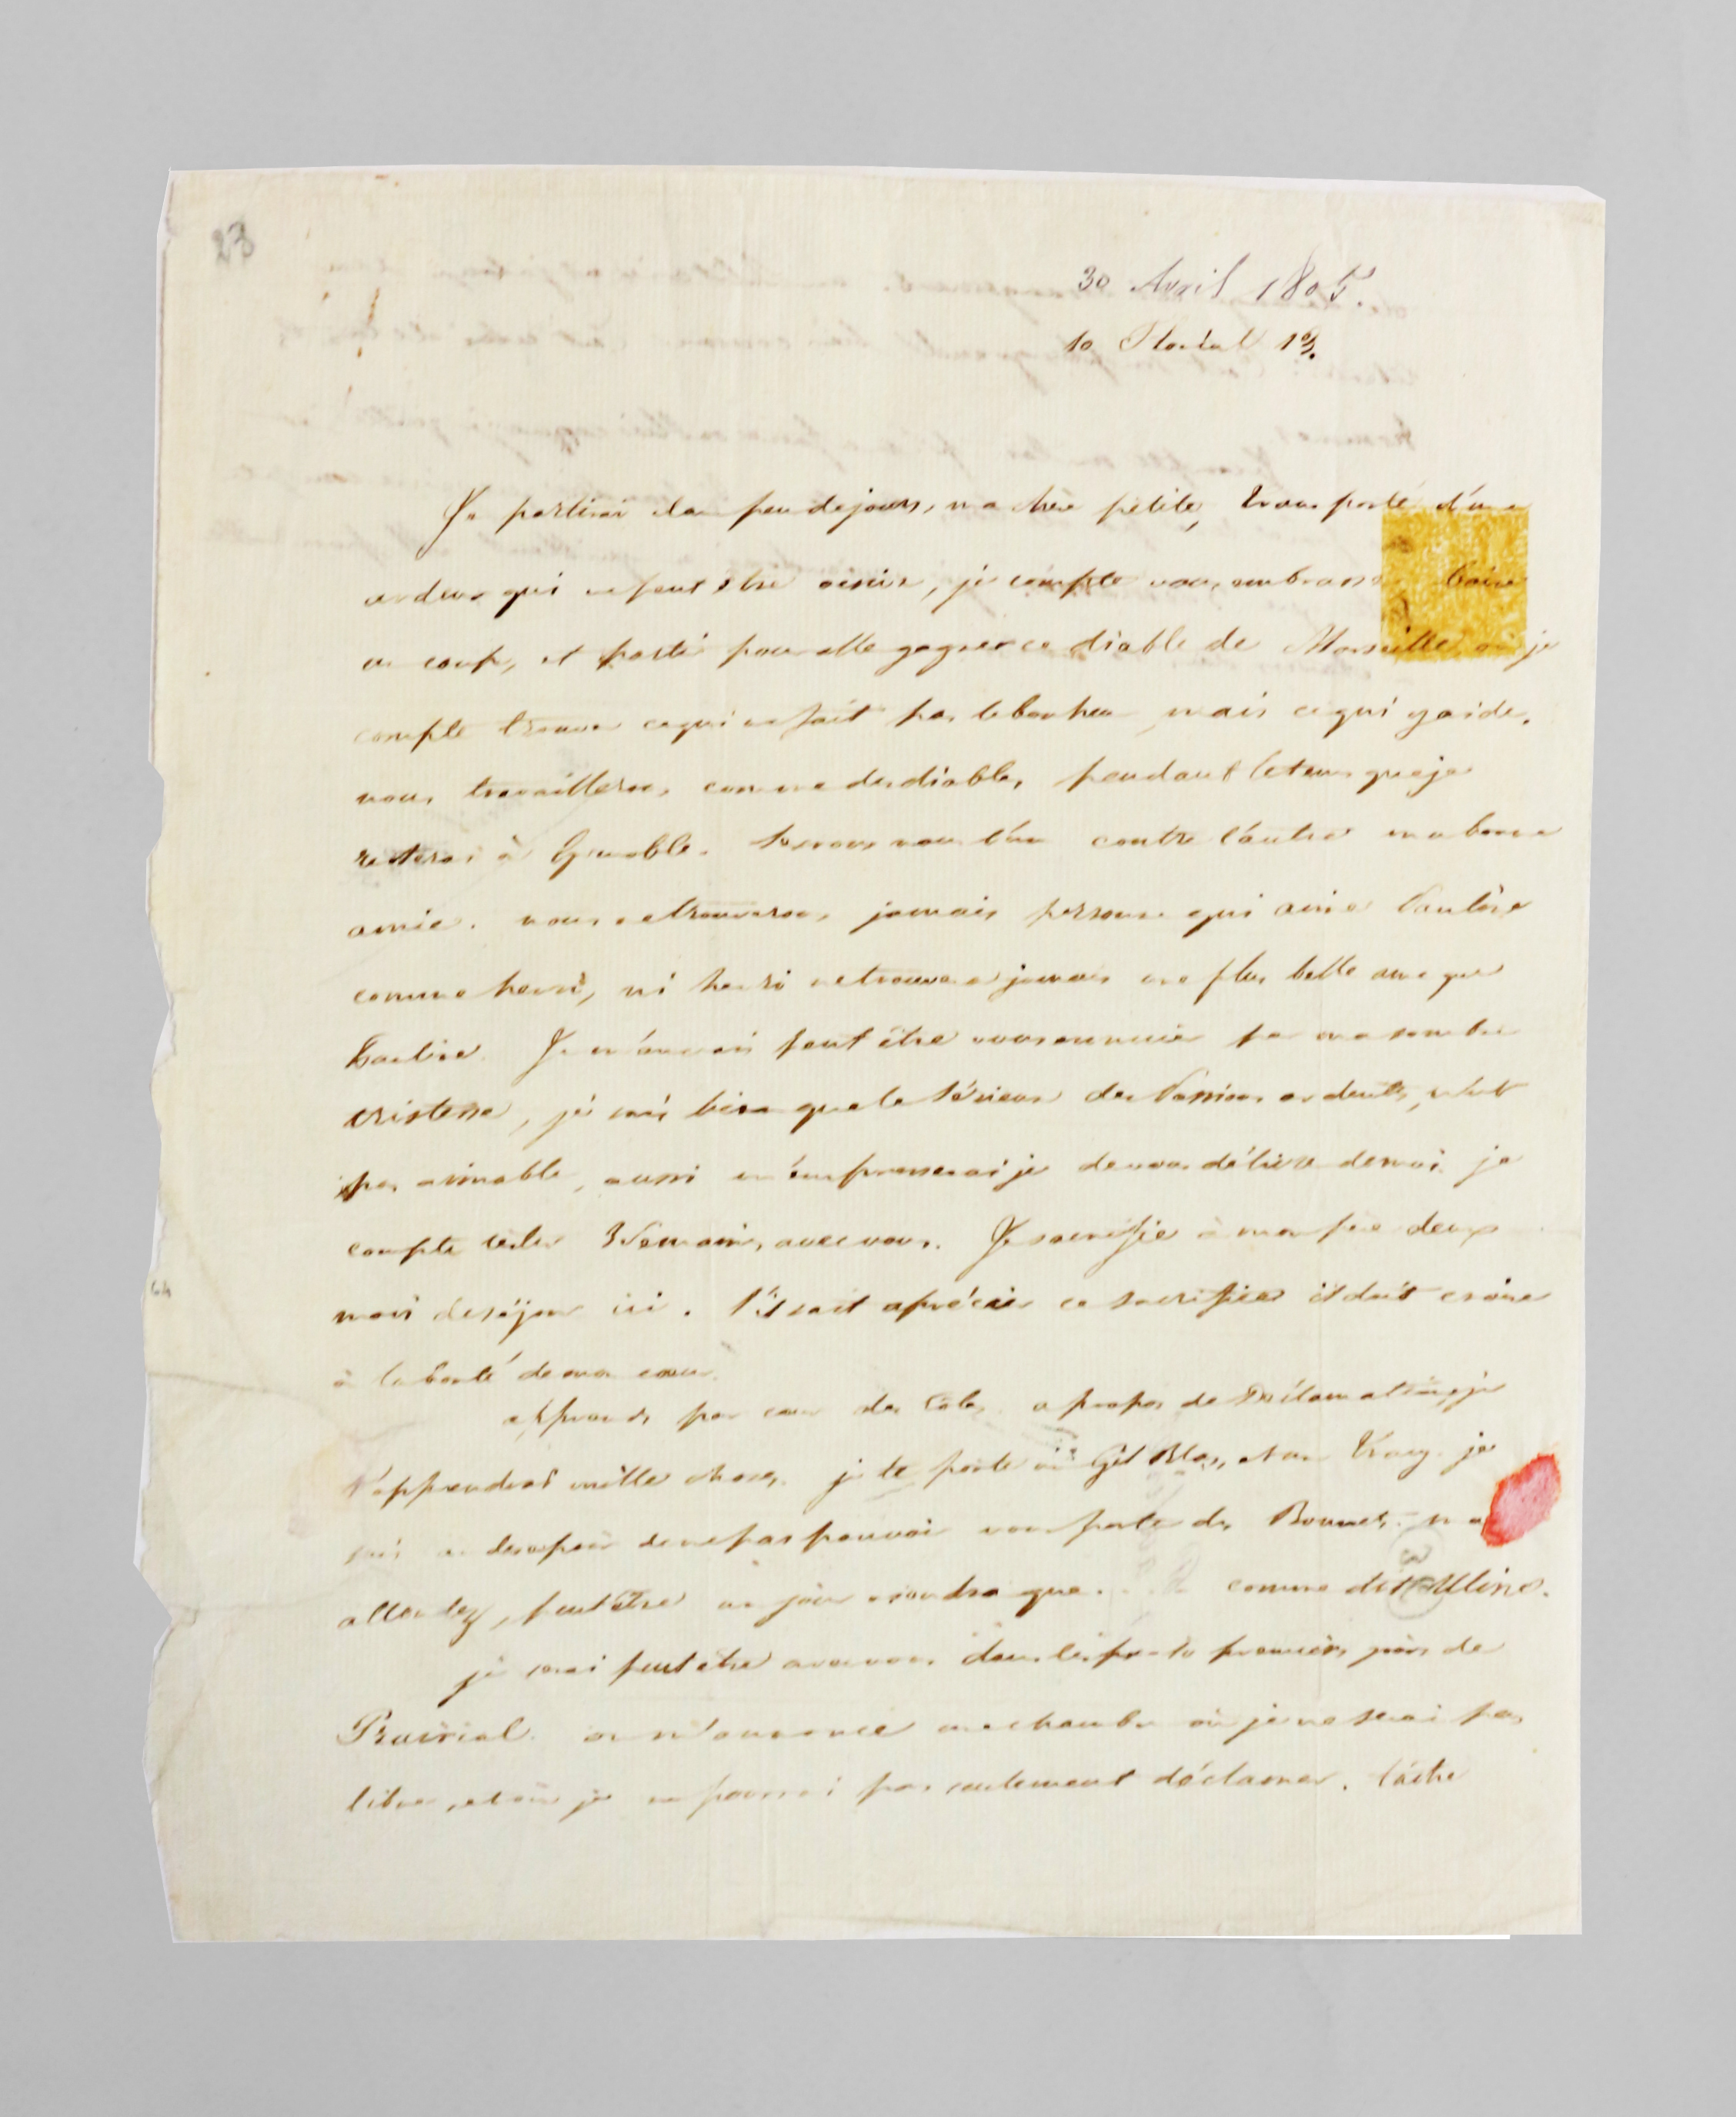 23
30 Avril 1805.
10 Floréal 13.
Je partirai dans peu de jours, ma chère petite, transporté d'une
ardeur qui ne peut être oisive, je compte vous embrasser boire
un coup, et partir pour aller gagner ce diable de Marseille où je
compte trouver ce qui ne fait pas le bonheur mais ce qui y aide.
nous travaillerons comme des diables, pendant le tems que je
resterai à Grenoble. Serrons nous l'un contre l'autre ma bonne
amie. nous ne trouverons jamais personne qui aime Pauline
comme henri, ni henri ne trouvera jamais une plus belle ame que
Pauline. Je m'en vais peut être vous ennuier par ma sombre
tristesse, je sais bien que le sérieux des Passions ardentes, n'est
pas aimable, aussi m'empresserai je de vous délivrer de moi. je
compte rester 3 Semaines avec vous. Je sacrifie à mon père deux
mois de séjour ici. S'il sait aprécier ce sacrifice il doit croire
à la bonté de mon cœur.
apprends par cœur des rôles. a propos de Déclamation, je
t'apprendrai mille choses. je te porte un Gil Blas, et un Tracy. je
suis au desespoir de ne pas pouvoir vous porter des Bonnets. ma
attendez, peut être un jour viendra que... comme dit Ulino.
je serai peut être avec vous dans les premiers jours de
Prairial. on m'annonce une chambre où je ne serai pas
libre, et où je ne pourrai pas seulement déclamer. tâche
64